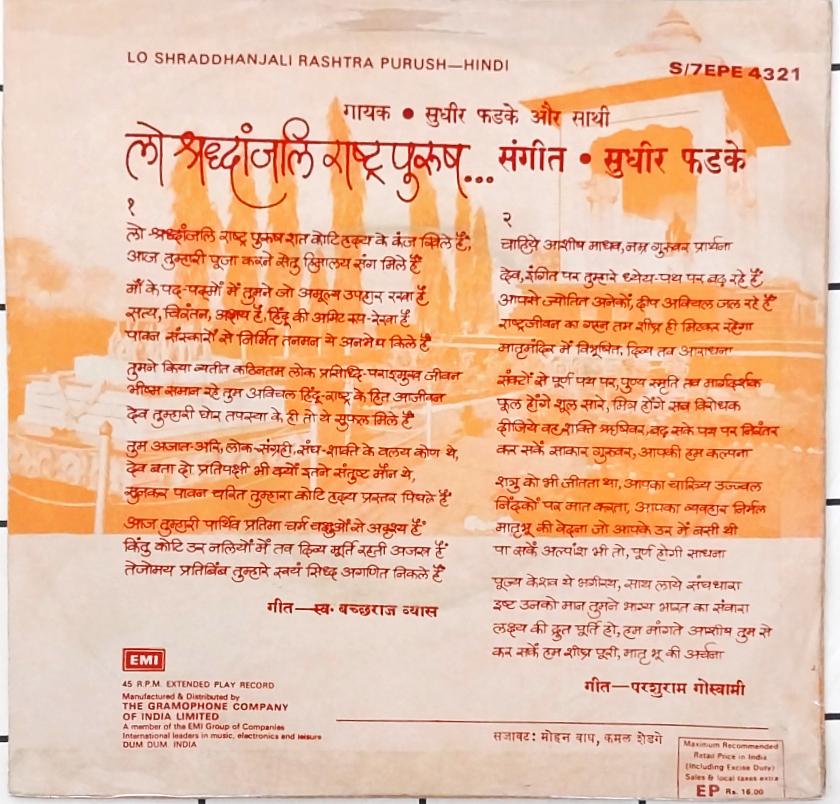 LO SHRADDHANJALI RASHTRA PURUSH—HINDI
S/7EPE 4321
गायक • सुधीर फडके और साथी
लो श्रध्दांजलि राष्ट्र पुरुष... संगीत • सुधीर फडके
१
लो श्रध्दांजलि राष्ट्र पुरुष शत कोटि हृदय के कंज खिले हैं,
आज तुम्हारी पूजा करने सेतु हिमालय संग मिले हैं
माँ के पद-पद्मों में तुमने जो अमूल्य उपहार रखा है
सत्य, चिरंतन, अक्षय है, हिंदू की अमिट रूप रेखा है
पावन संस्कारों से निर्मित तनमन ये अनमेय किले हैं
तुमने किया व्यतीत कठिनतम लोक प्रसिध्दि-पराङमुख जीवन
भीष्म समान रहे तुम अविचल हिंदू-राष्ट्र के हित आजीवन
देव तुम्हारी घोर तपस्या के ही तो ये सुफल मिले हैं
तुम अजात-अरि, लोक-संग्रही, संघ-शक्ति के वलय कोण थे,
देव बता दो प्रतिपक्षी भी क्यों इतने संतुष्ट मौन थे,
सुनकर पावन चरित तुम्हारा कोटि हृदय प्रस्तर पिघले हैं
आज तुम्हारी पार्थिव प्रतिमा चर्म चक्षुओं से अदृश्य है
किंतु कोटि उर नलियों में तव दिव्य मूर्ति रहती अजस्र है
तेजोमय प्रतिबिंब तुम्हारे स्वयं सिध्द अगणित निकले हैं
गीत—स्व. बच्छराज व्यास
२
चाहिये आशीष माधव, नम्र गुरुवर प्रार्थना
देव, इंगित पर तुम्हारे ध्येय-पथ पर बढ़ रहे हैं
आपसे ज्योतित अनेकों, दीप अविचल जल रहे हैं
राष्ट्रजीवन का गहन तम शीघ्र ही मिटकर रहेगा
मातृमंदिर में विभूषित, दिव्य तव आराधना
संकटों से पूर्ण पथ पर, पुण्य स्मृति तव मार्गदर्शक
फूल होंगे शूल सारे, मित्र होंगे सब विरोधक
दीजिये वह शक्ति ऋषिवर, बढ़ सके पथ पर निरंतर
कर सकें साकार गुरुवर, आपकी हम कल्पना
शत्रु को भी जीतता था, आपका चारित्र्य उज्ज्वल
निंदकों पर मात करता, आपका व्यवहार निर्मल
मातृभू की वेदना जो आपके उर में बसी थी
पा सकें अल्पांश भी तो, पूर्ण होगी साधना
पूज्य केशव थे भगीरथ, साथ लाये संघधारा
इष्ट उनको मान तुमने भाग्य भारत का संवारा
लक्ष्य की द्रुत पूर्ति हो, हम मांगते आशीष तुम से
कर सकें हम शीघ्र पूरी, मातृ भू की अर्चना
गीत—परशुराम गोस्वामी
EMI
45 R.P.M. EXTENDED PLAY RECORD
Manufactured & Distributed by
THE GRAMOPHONE COMPANY
OF INDIA LIMITED
A member of the EMI Group of Companies
International leaders in music, electronics and leisure
DUM DUM. INDIA
सजावट: मोहन वाघ, कमल शेडगे
Maximum Recommended
Retail Price in India
(Including Excise Duty)
Sales & local taxes extra
EP Rs. 16.00